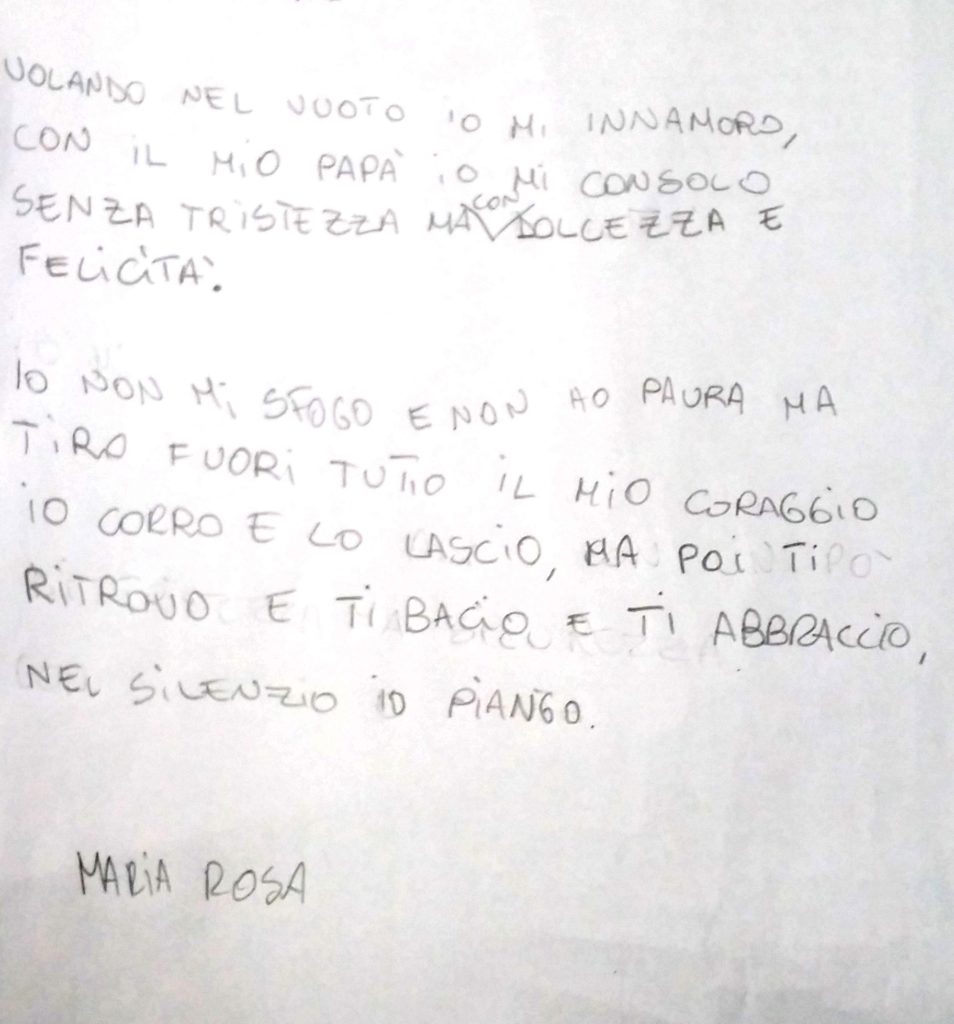 VOLANDO NEL VUOTO IO MI INNAMORO,
CON IL MIO PAPÀ IO MI CONSOLO
SENZA TRISTEZZA MA CON DOLCEZZA E
FELICITÀ.
IO NON MI SFOGO E NON HO PAURA MA
TIRO FUORI TUTTO IL MIO CORAGGIO
IO CORRO E LO LASCIO, MA POI TI
RITROVO E TI BACIO E TI ABBRACCIO,
NEL SILENZIO IO PIANGO.
MARIA ROSA